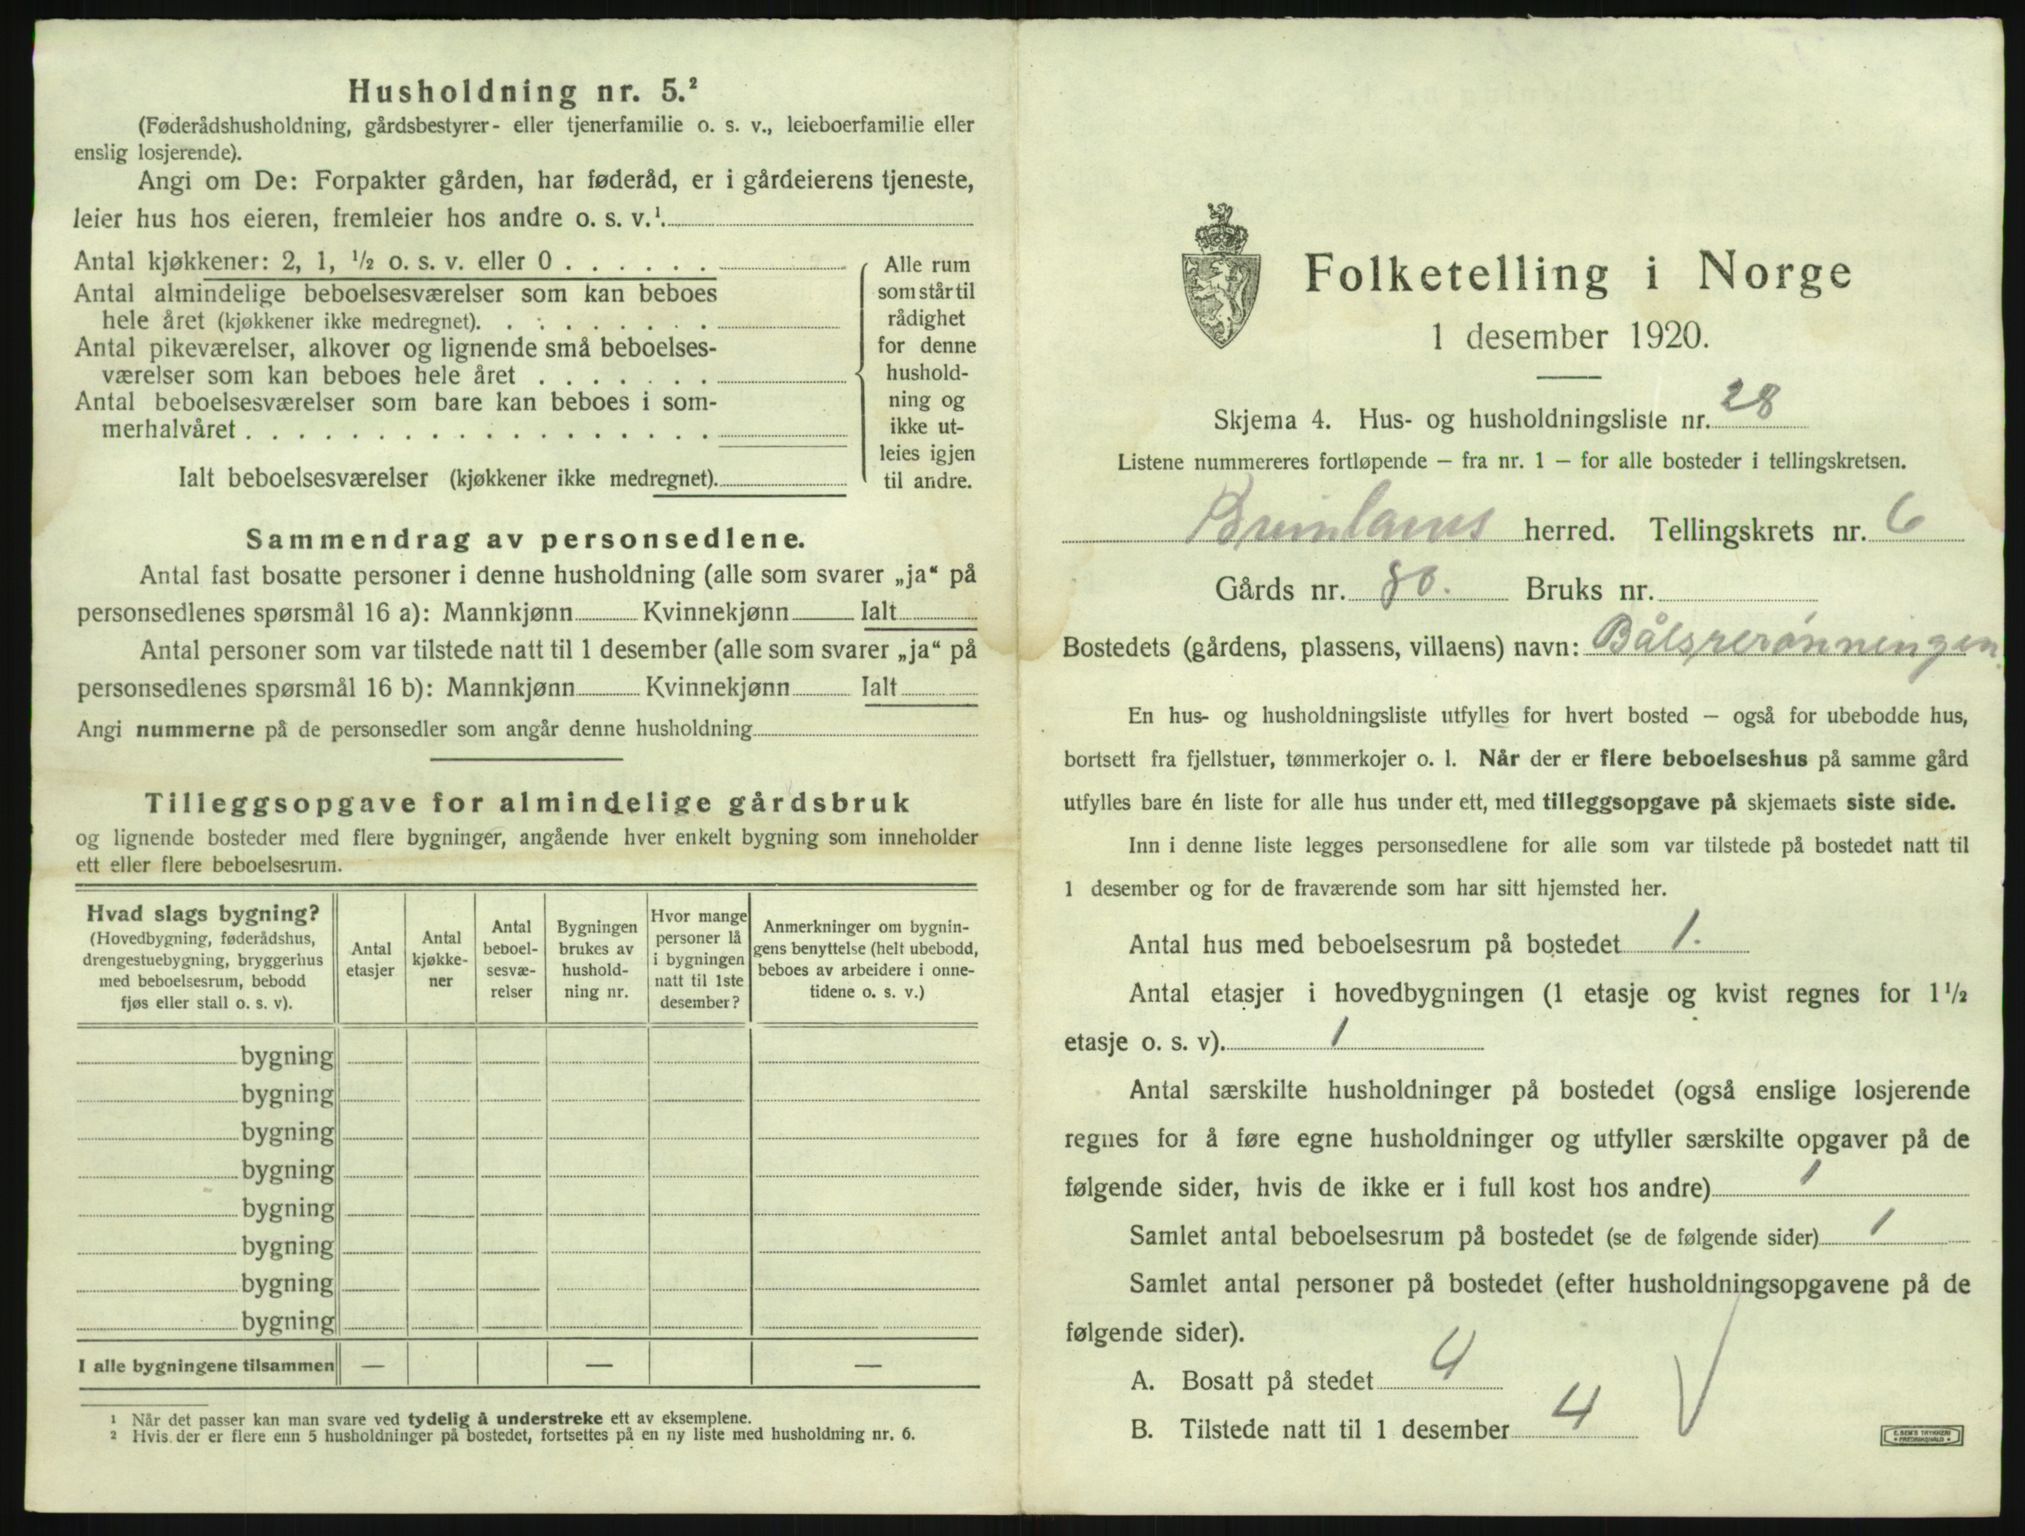 Husholdning nr. 5.²
(Føderådshusholdning, gårdsbestyrer- eller tjenerfamilie o. s. v., leieboerfamilie eller
enslig losjerende).
Angi om De: Forpakter gården, har føderåd, er i gårdeierens tjeneste,
leier hus hos eieren, fremleier hos andre o. s. v.¹.
Antal kjøkkener: 2, 1, ½ o. s. v. eller 0 . . . . . .
Antal almindelige beboelsesværelser som kan beboes
hele året (kjøkkener ikke medregnet). . . . . . . .
Antal pikeværelser, alkover og lignende små beboelses-
værelser som kan beboes hele året . . . . . . .
Antal beboelsesværelser som bare kan beboes i som-
merhalvåret . . . . . . . . . . . . . . . . . .
Ialt beboelsesværelser (kjøkkener ikke medregnet).
Alle rum
som står til
rådighet
for denne
hushold-
ning og
ikke ut-
leies igjen
til andre.
Sammendrag av personsedlene.
Antal fast bosatte personer i denne husholdning (alle som svarer „ja“ på
personsedlenes spørsmål 16 a): Mannkjønn Kvinnekjønn Ialt
Antal personer som var tilstede natt til 1 desember (alle som svarer „ja“ på
personsedlenes spørsmål 16 b): Mannkjønn Kvinnekjønn Ialt
Angi nummerne på de personsedler som angår denne husholdning
Tilleggsopgave for almindelige gårdsbruk
og lignende bosteder med flere bygninger, angående hver enkelt bygning som inneholder
ett eller flere beboelsesrum.
Hvad slags bygning?
(Hovedbygning, føderådshus,
drengestuebygning, bryggerhus
med beboelsesrum, bebodd
fjøs eller stall o. s. v).
Antal
etasjer
Antal
kjøkke-
ner
Antal
beboel-
sesvæ-
relser
Bygningen
brukes av
hushold-
ning nr.
Hvor mange
personer lå
i bygningen
natt til 1ste
desember?
Anmerkninger om bygnin-
gens benyttelse (helt ubebodd,
beboes av arbeidere i onne-
tidene o. s. v.)
bygning
bygning
bygning
bygning
bygning
bygning
bygning
bygning
I alle bygningene tilsammen — — —
¹ Når det passer kan man svare ved tydelig å understreke ett av eksemplene.
² Hvis der er flere enn 5 husholdninger på bostedet, fortsettes på en ny liste med husholdning nr. 6.
Folketelling i Norge
1 desember 1920.
Skjema 4. Hus- og husholdningsliste nr. 28
Listene nummereres fortløpende – fra nr. 1 – for alle bosteder i tellingskretsen.
Brunlanes herred. Tellingskrets nr. 6
Gårds nr. 80. Bruks nr.
Bostedets (gårdens, plassens, villaens) navn: Bålsrerønningen
En hus- og husholdningsliste utfylles for hvert bosted – også for ubebodde hus,
bortsett fra fjellstuer, tømmerkojer o. l. Når der er flere beboelseshus på samme gård
utfylles bare én liste for alle hus under ett, med tilleggsopgave på skjemaets siste side.
Inn i denne liste legges personsedlene for alle som var tilstede på bostedet natt til
1 desember og for de fraværende som har sitt hjemsted her.
Antal hus med beboelsesrum på bostedet 1.
Antal etasjer i hovedbygningen (1 etasje og kvist regnes for 1½
etasje o. s. v). 1
Antal særskilte husholdninger på bostedet (også enslige losjerende
regnes for å føre egne husholdninger og utfyller særskilte opgaver på de
følgende sider, hvis de ikke er i full kost hos andre) 1
Samlet antal beboelsesrum på bostedet (se de følgende sider) 1
Samlet antal personer på bostedet (efter husholdningsopgavene på de
følgende sider).
A. Bosatt på stedet 4
B. Tilstede natt til 1 desember 4
E. SEM'S TRYKKERI
FREDRIKSHALD